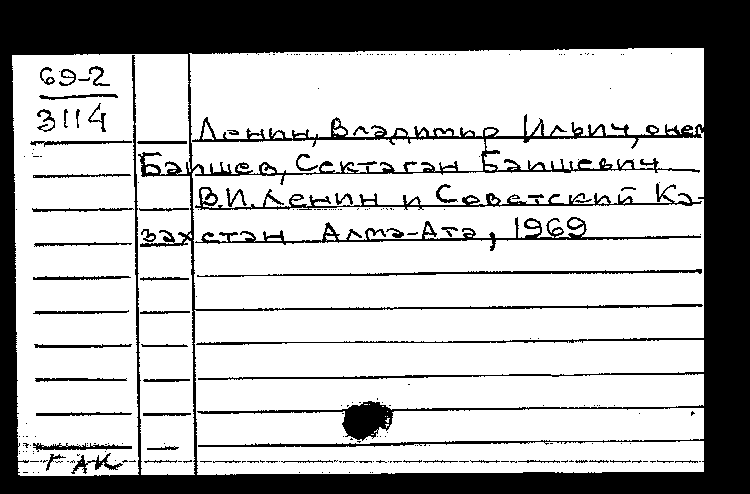 69-2
3114
Ленин, Владимир Ильич, о нем
Баишев, Сектаган Баишевич
В.И. Ленин и Советский Ка-
захстан Алма-Ата, 1969
ГАК